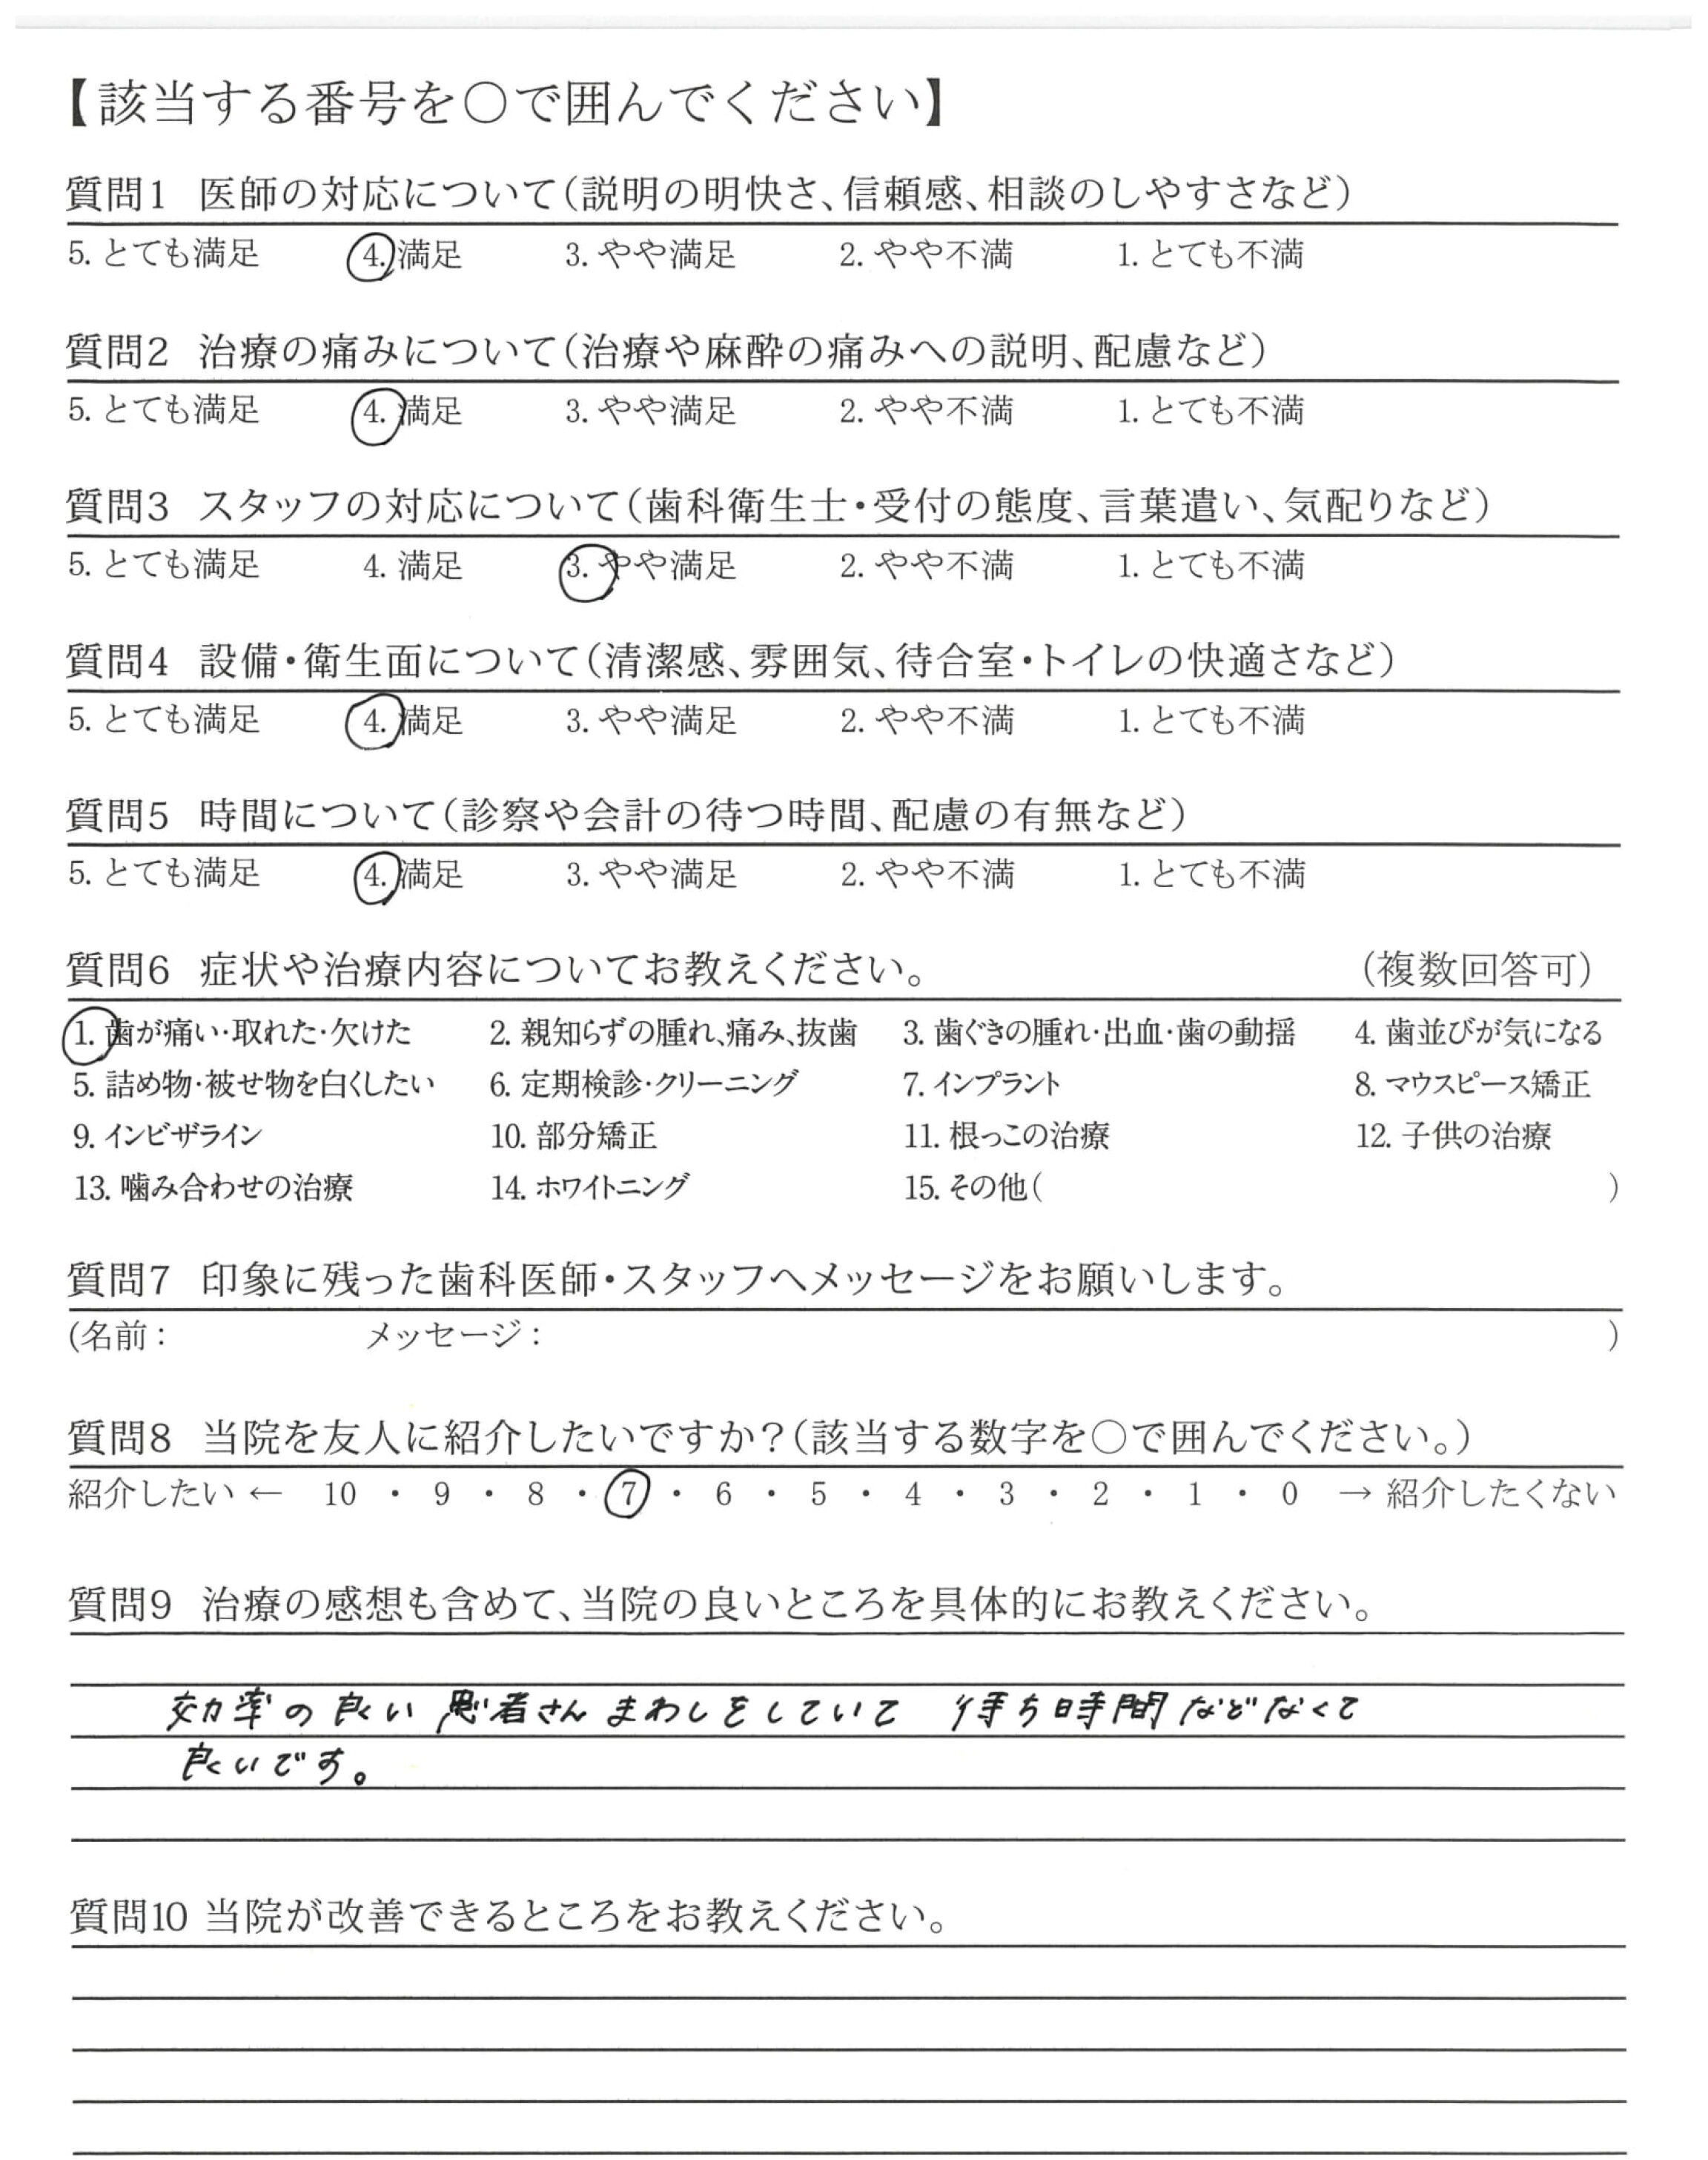 【該当する番号を○で囲んでください】
質問1 医師の対応について(説明の明快さ、信頼感、相談のしやすさなど)
5. とても満足 4. 満足 3. やや満足 2. やや不満 1. とても不満
質問2 治療の痛みについて(治療や麻酔の痛みへの説明、配慮など)
5. とても満足 4. 満足 3. やや満足 2. やや不満 1. とても不満
質問3 スタッフの対応について(歯科衛生士・受付の態度、言葉遣い、気配りなど)
5. とても満足 4. 満足 3. やや満足 2. やや不満 1. とても不満
質問4 設備・衛生面について(清潔感、雰囲気、待合室・トイレの快適さなど)
5. とても満足 4. 満足 3. やや満足 2. やや不満 1. とても不満
質問5 時間について(診察や会計の待つ時間、配慮の有無など)
5. とても満足 4. 満足 3. やや満足 2. やや不満 1. とても不満
質問6 症状や治療内容についてお教えください。 (複数回答可)
1. 歯が痛い・取れた・欠けた 2. 親知らずの腫れ、痛み、抜歯 3. 歯ぐきの腫れ・出血・歯の動揺 4. 歯並びが気になる
5. 詰め物・被せ物を白くしたい 6. 定期検診・クリーニング 7. インプラント 8. マウスピース矯正
9. インビザライン 10. 部分矯正 11. 根っこの治療 12. 子供の治療
13. 噛み合わせの治療 14. ホワイトニング 15. その他( )
質問7 印象に残った歯科医師・スタッフへメッセージをお願いします。
(名前: メッセージ: )
質問8 当院を友人に紹介したいですか?(該当する数字を○で囲んでください。)
紹介したい ← 10 ・ 9 ・ 8 ・ 7 ・ 6 ・ 5 ・ 4 ・ 3 ・ 2 ・ 1 ・ 0 → 紹介したくない
質問9 治療の感想も含めて、当院の良いところを具体的にお教えください。
効率の良い 患者さん まわしをしていて 待ち時間などなくて
良いです。
質問10 当院が改善できるところをお教えください。